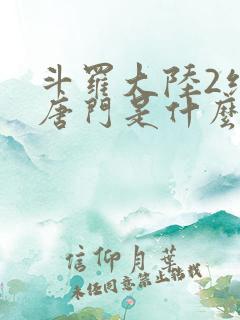 斗羅大陸2
唐門是什麼
信仰月葉
未經同意禁止轉載